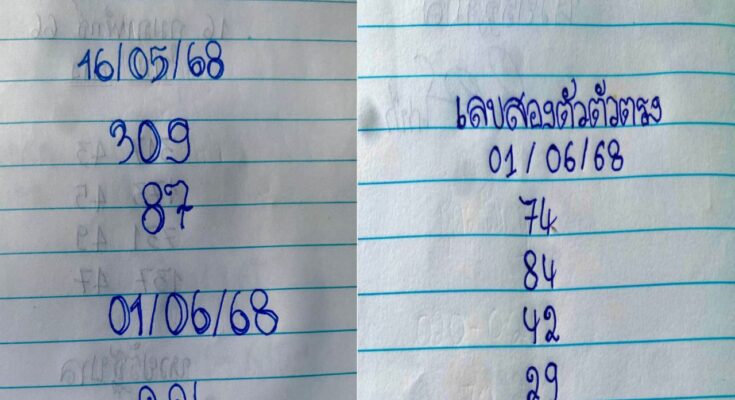 16/05/68
309
87
01/06/68
เลขสองตัวตัวตรง
01/06/68
74
84
42
29